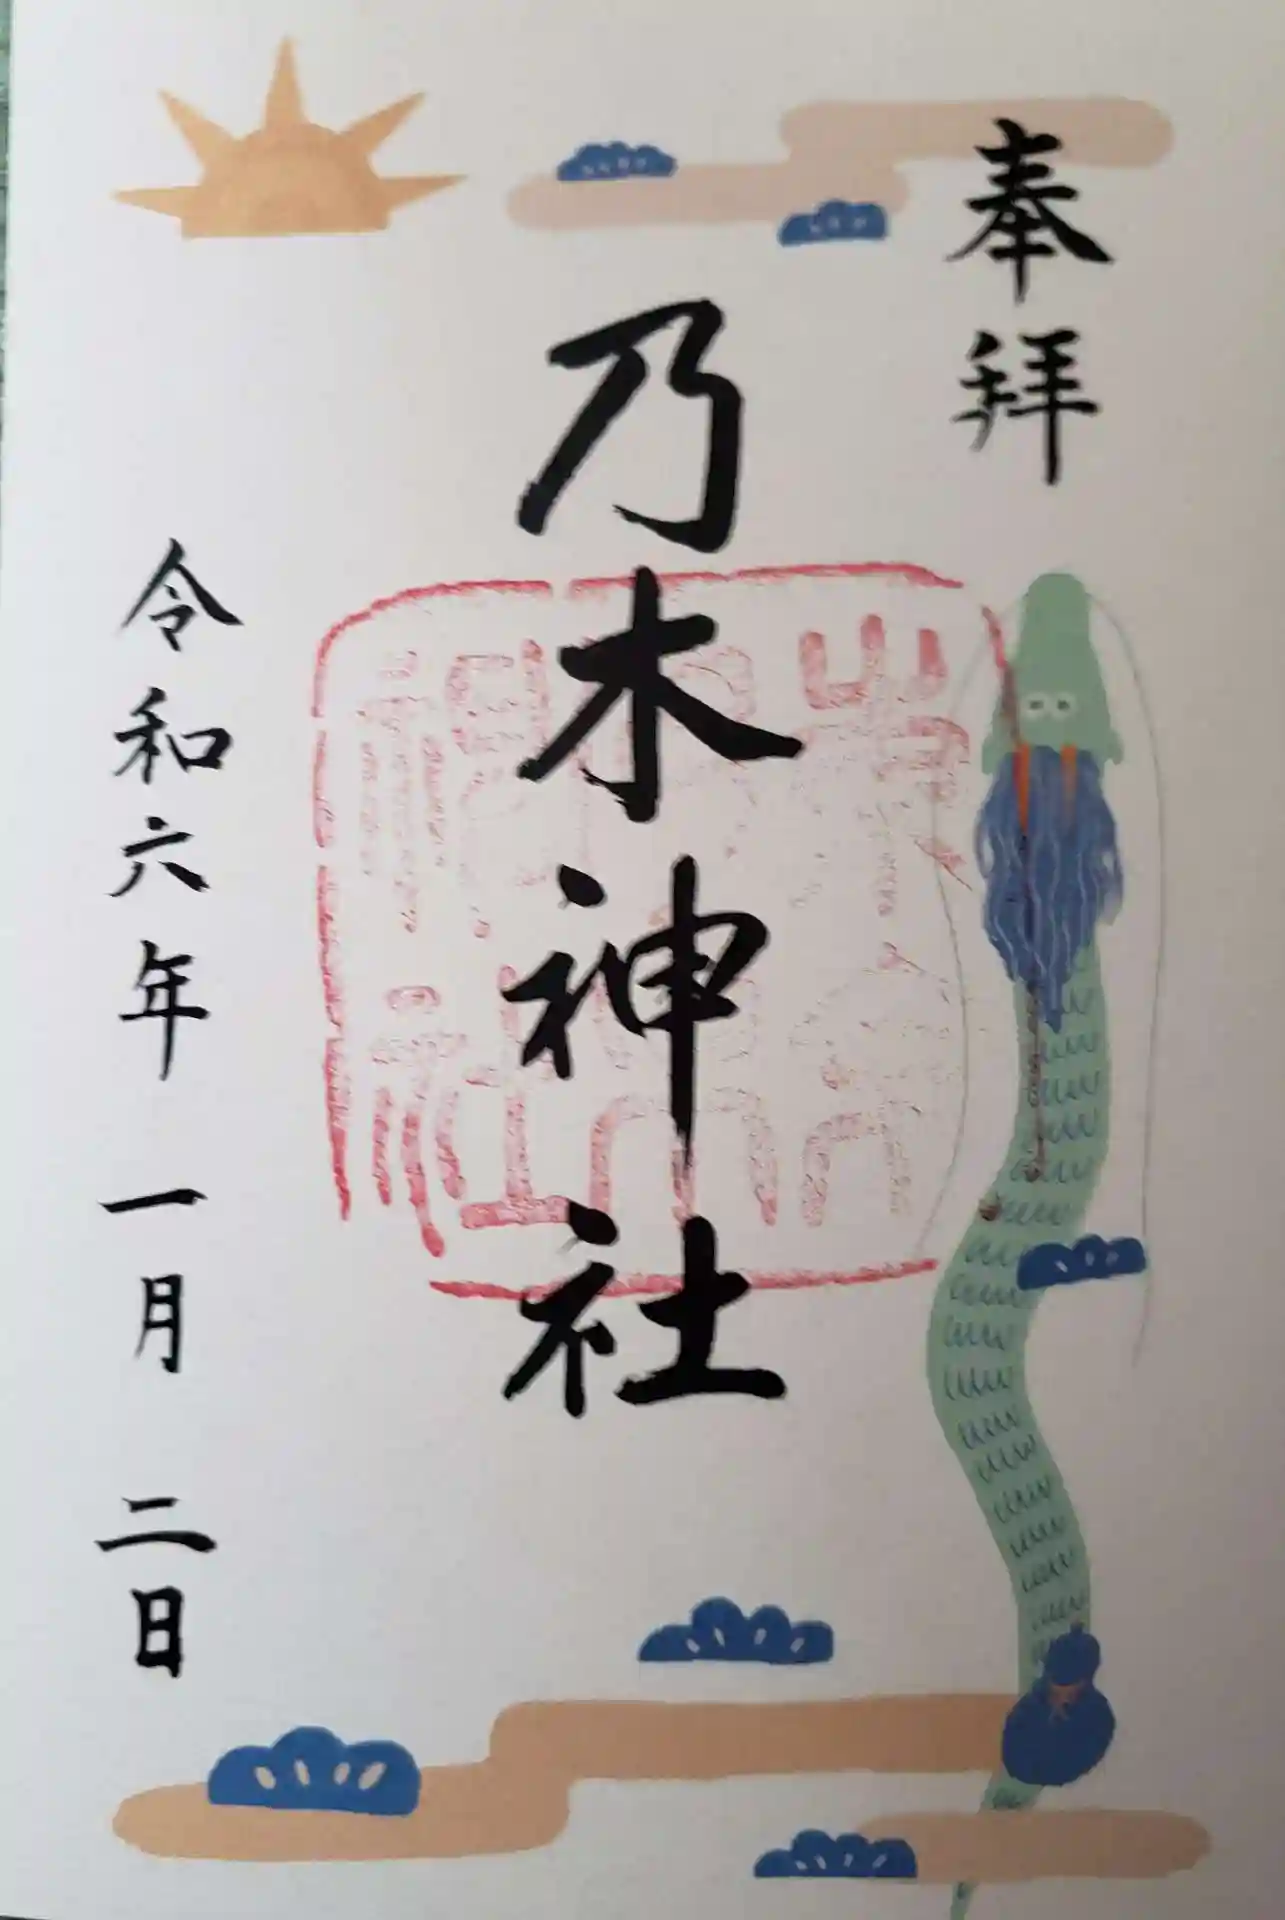 奉拝
乃木神社
令和六年一月二日